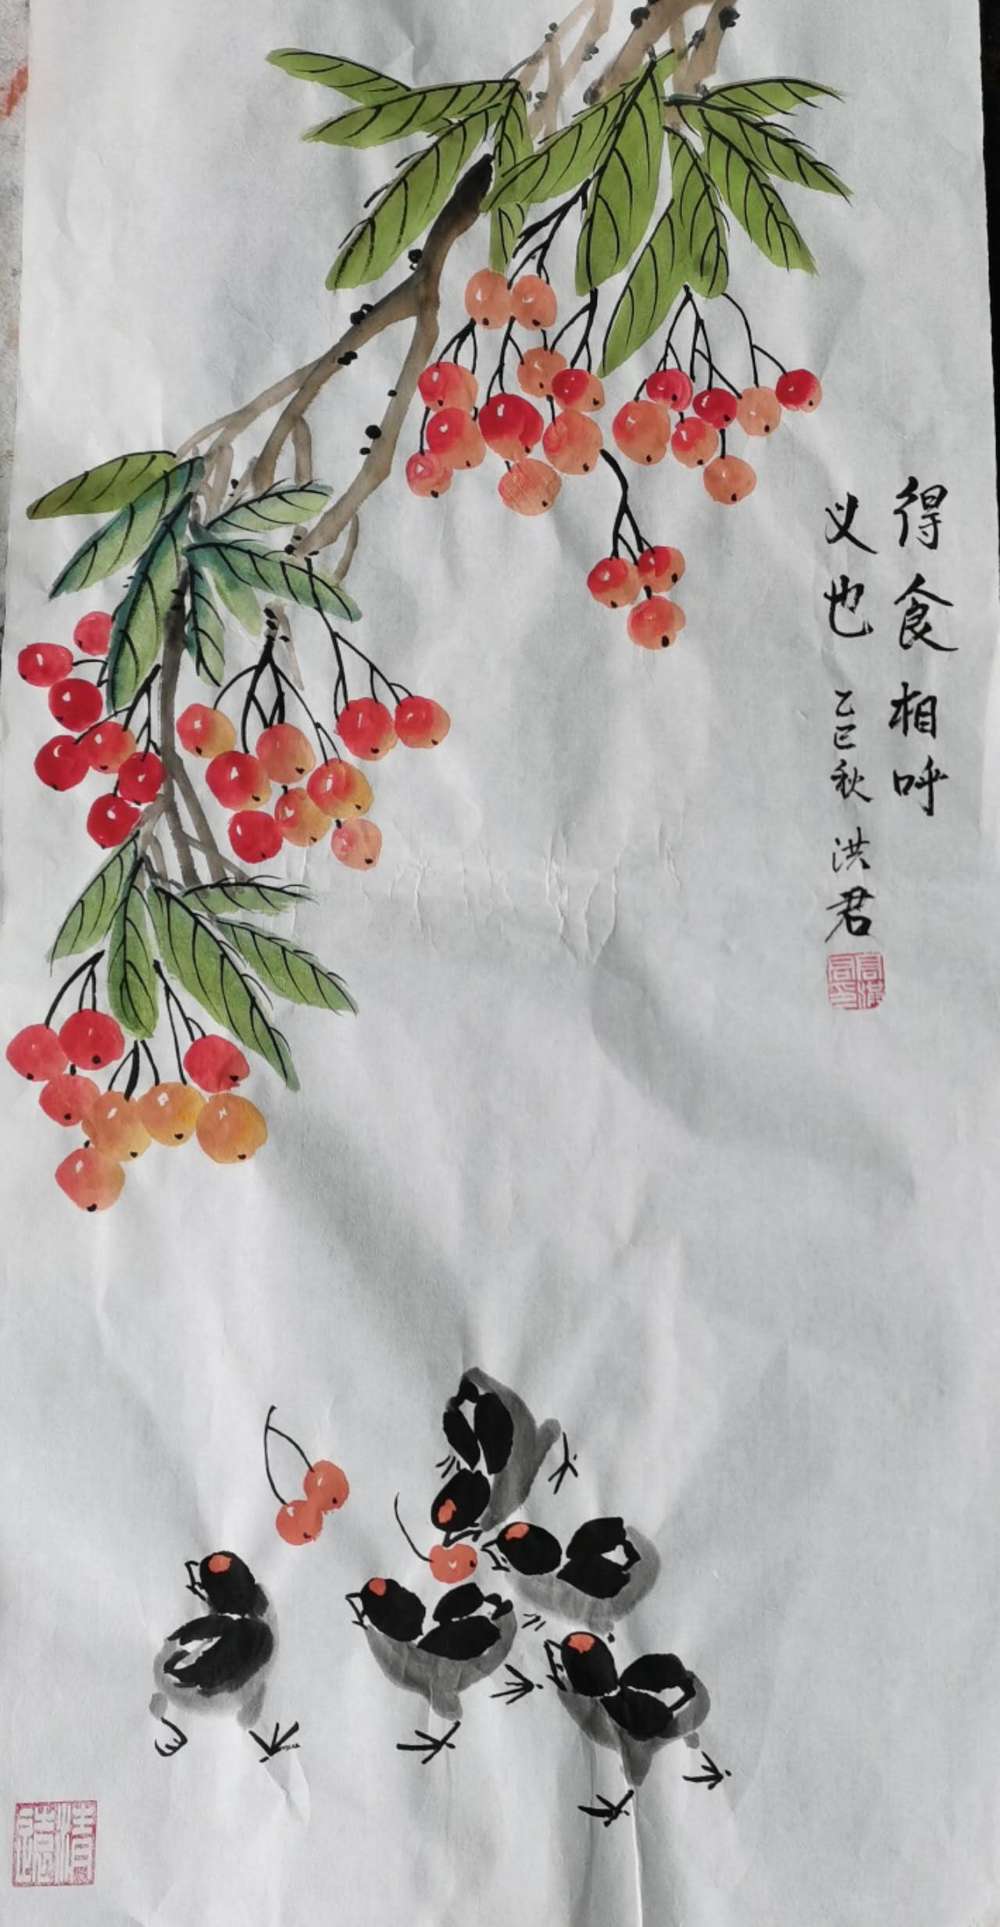 得食相呼
义也 乙巳秋 洪君